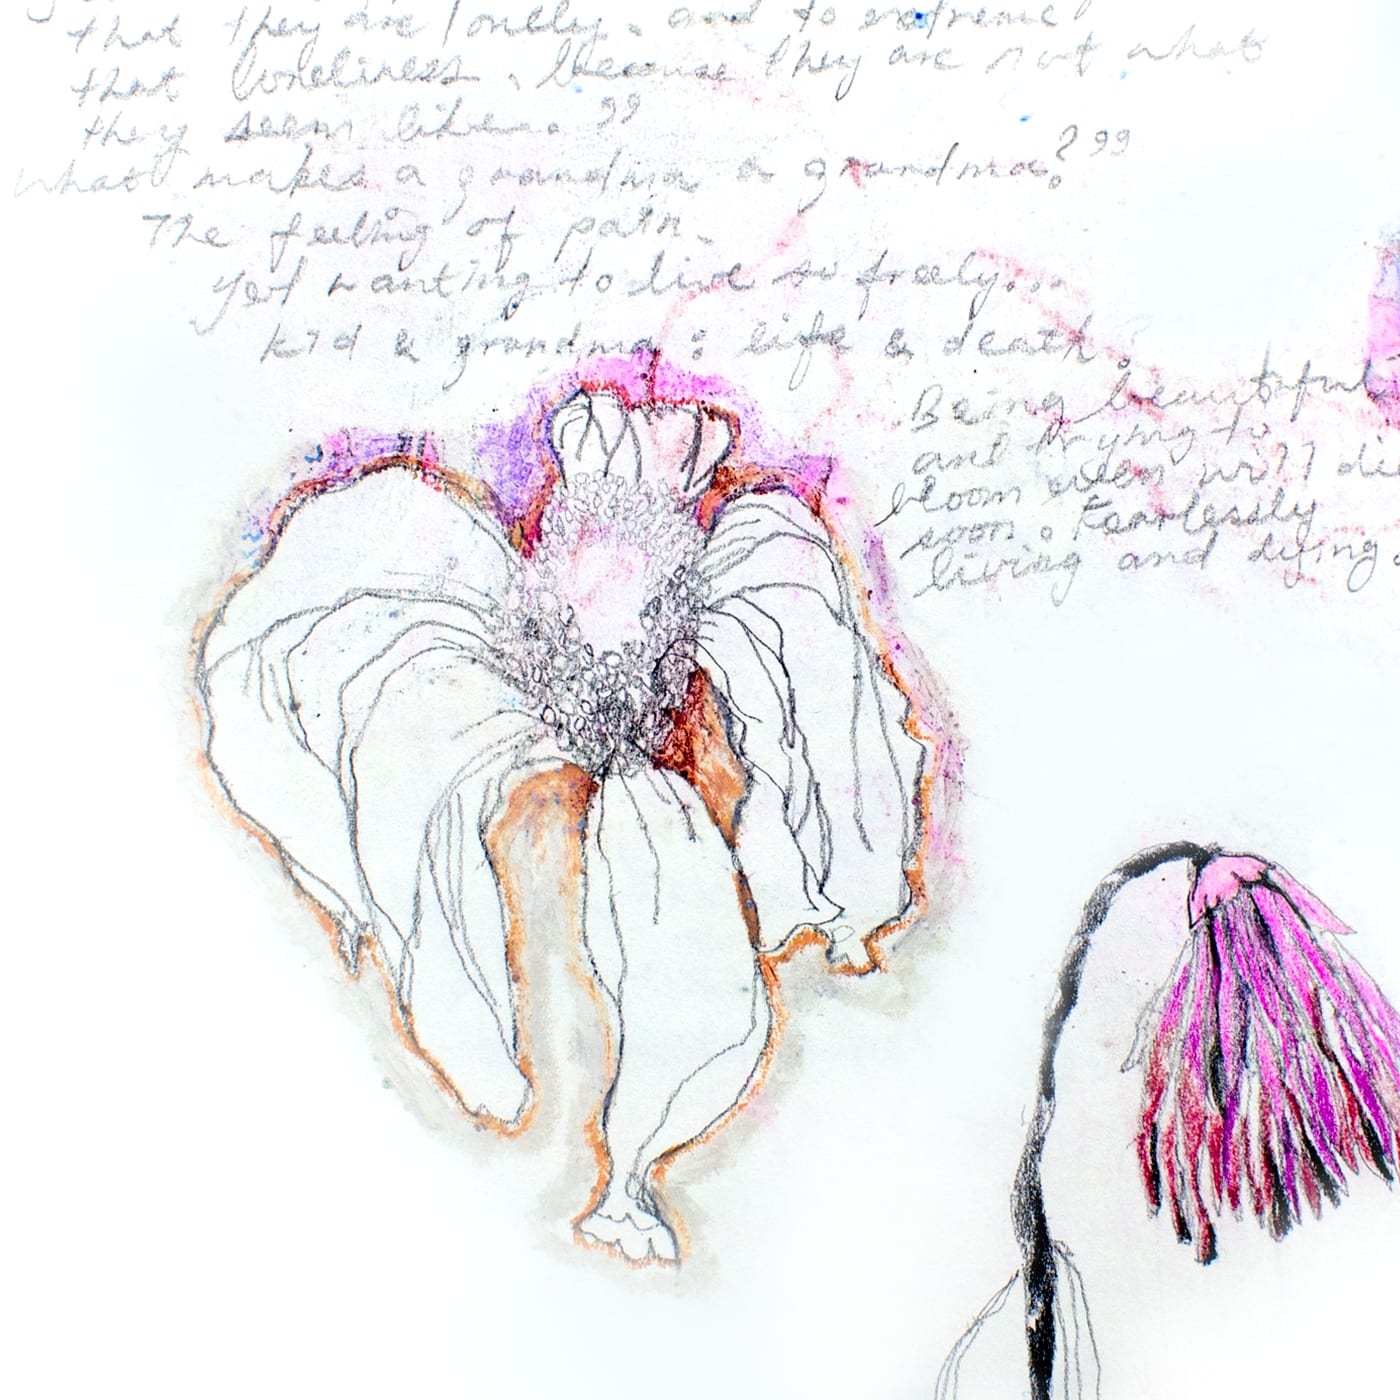 that they are lonely. and to extreme
that loneliness, because they are not what
they seem like."
what makes a grandma a grandma?"
The feeling of pain.
yet wanting to live so freely...
kid & grandma : life & death?
Being beautiful
and trying to
bloom even will die
soon. Fearlessly
living and dying.